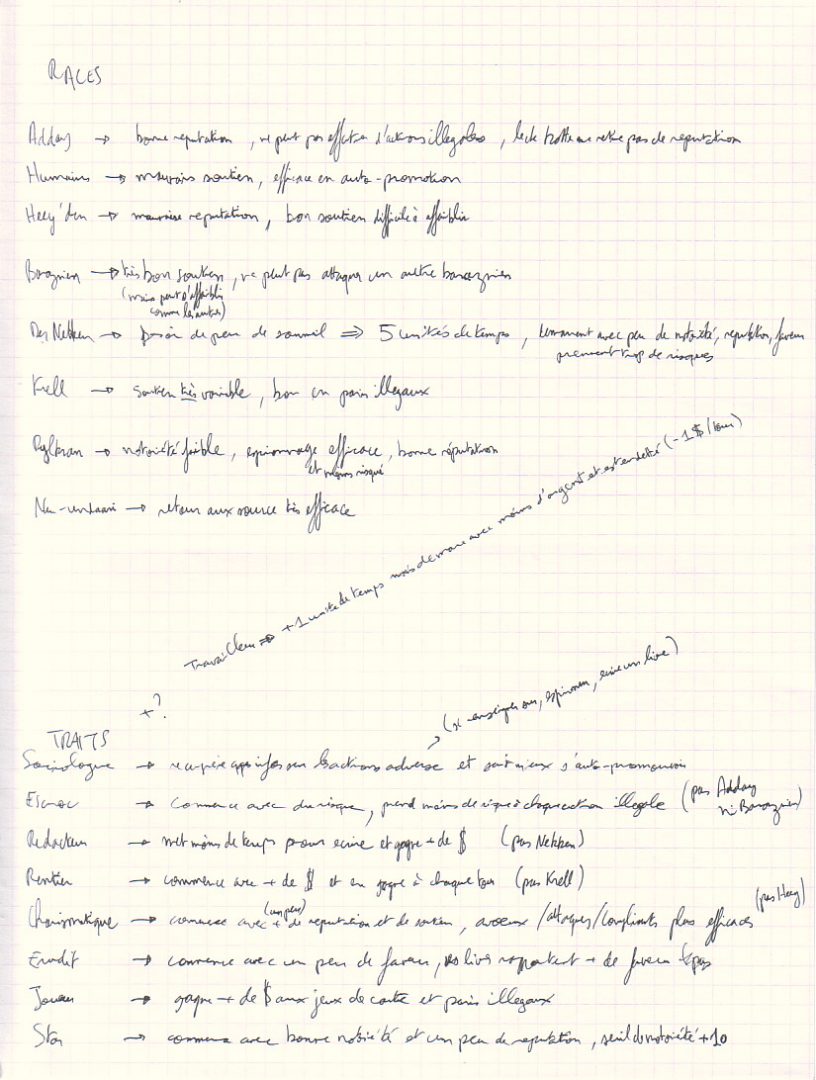 RACES
Addary → bonne reputation, ne peut pas effectuer d'actions illegales, ne retire pas de reputation
Humains → mauvais soutien, efficace en auto-promotion
Heey'den → mauvaise reputation, bon soutien difficile à affaiblir
Baraznien → très bon soutien, ne peut pas attaquer un autre baraznien
(mais peut s'affaiblir
comme les autres)
Nekken → besoin de peu de sommeil ⇒ 5 unités de temps, avec peu de notoriété, reputation, faveur
prennent trop de risques
Krell → soutien très variable, bon en paris illegaux
→ notoriété faible, espionnage efficace, bonne réputation
et moins risqué
→ retour aux source très efficace
Travailleur ⇒ +1 unité de temps mais demarre avec moins d'argent et est endetté (-1$/tour)
+?
(si enseigner, espionner, ecrire un livre)
TRAITS
Sociologue → recupère infos sur les actions adverse et sait mieux s'auto-promouvoir
Escroc → commence avec du risque, prend moins de risque à chaque action illegale (pas Addary
ni Baraznien)
Redacteur → met moins de temps pour ecrire et gagne + de $ (pas Nekken)
Rentier → commence avec + de $ et en gagne à chaque tour (pas Krell)
Charismatique → commence avec + (un peu) de reputation et de soutien, /attaques/compliments plus efficaces (pas Heey)
Erudit → commence avec un peu de faveur, ses livres rapportent + de faveur
Joueur → gagne + de $ aux jeux de carte et paris illegaux
Star → commence avec bonne notoriété et un peu de reputation, seuil de notoriété +10